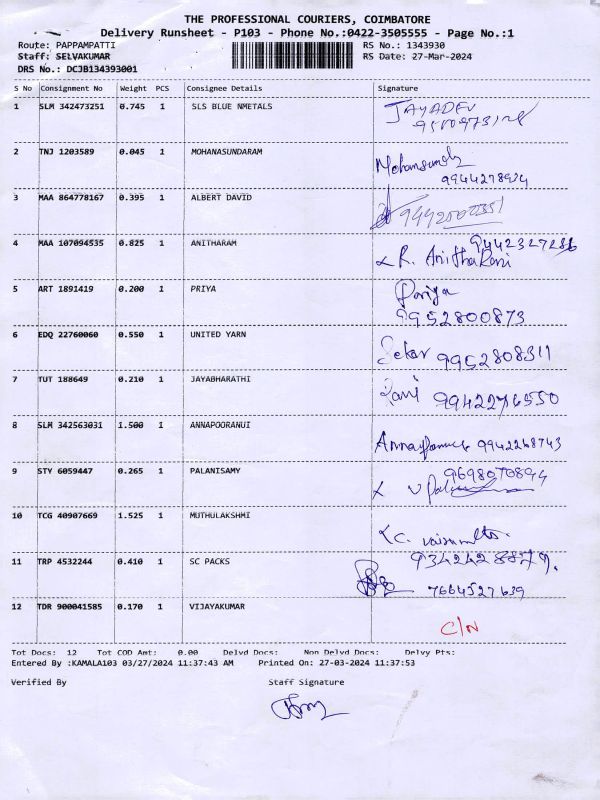 THE PROFESSIONAL COURIERS, COIMBATORE
Delivery Runsheet - P103 - Phone No.:0422-3505555 - Page No.:1
Route: PAPPAMPATTI RS No.: 1343930
Staff: SELVAKUMAR RS Date: 27-Mar-2024
DRS No.: DCJB134393001
S No Consignment No Weight PCS Consignee Details Signature
1 SLM 342473251 0.745 1 SLS BLUE NMETALS JAYADEV
2 TNJ 1203589 0.045 1 MOHANASUNDARAM
9944278934
3 MAA 864778167 0.395 1 ALBERT DAVID
4 MAA 107094535 0.825 1 ANITHARAM
R. Anitha Rani
5 ART 1891419 0.200 1 PRIYA Priya
9952800873
6 EDQ 22760060 0.550 1 UNITED YARN
Sekar 9952808311
7 TUT 188649 0.210 1 JAYABHARATHI
Rani 9942276550
8 SLM 342563031 1.500 1 ANNAPOORANUI
9942268743
9 STY 6059447 0.265 1 PALANISAMY 9698070894
10 TCG 40907669 1.525 1 MUTHULAKSHMI
11 TRP 4532244 0.410 1 SC PACKS
7664527639
12 TDR 900041585 0.170 1 VIJAYAKUMAR
C/N
Tot Docs: 12 Tot COD Amt: 0.00 Delvd Docs: Non Delvd Docs: Delvy Pts:
Entered By :KAMALA103 03/27/2024 11:37:43 AM Printed On: 27-03-2024 11:37:53
Verified By Staff Signature